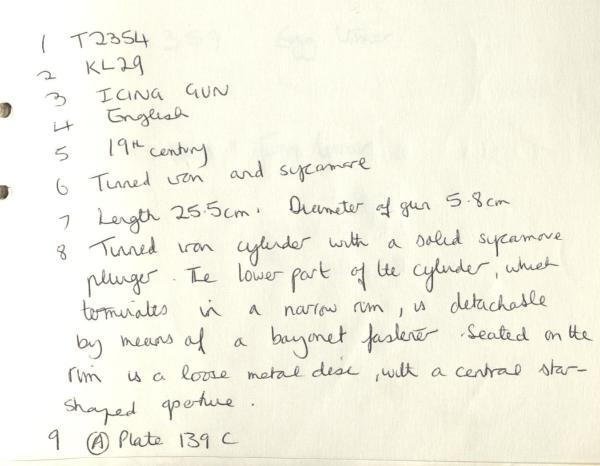 1 T2354
2 KL29
3 ICING GUN
4 English
5 19th century
6 Tinned iron and sycamore
7 Length 25.5cm. Diameter of gun 5.8cm
8 Tinned iron cylinder with a solid sycamore
plunger. The lower part of the cylinder, which
terminates in a narrow rim, is detachable
by means of a bayonet fastener. Seated on the
rim is a loose metal disc, with a central star-
shaped aperture.
9 (A) Plate 139 C